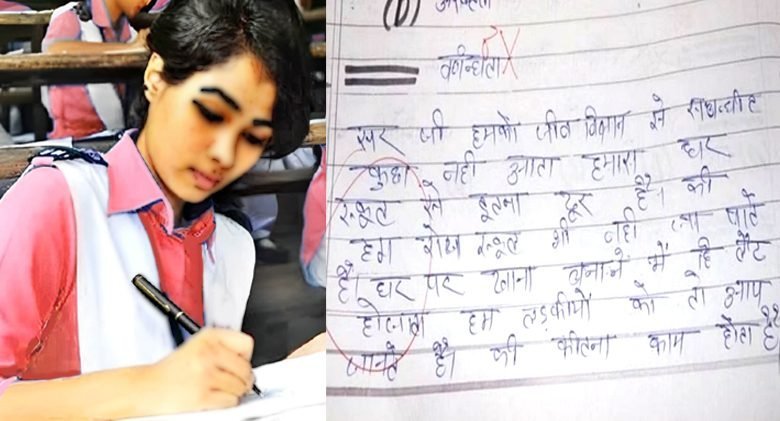 (D)
वर्णन्धता
सर जी हमको जीव विज्ञान से सम्बन्धीत
कुछ नही आता हमारा घर
स्कूल से इतना दूर है। की
हम रोज स्कूल भी नही जा पाते
है। घर पर खाना बनाने में हि लेट
होजाता हम लड़कीयों को तो आप
जानते है। की कीतना काम होता है